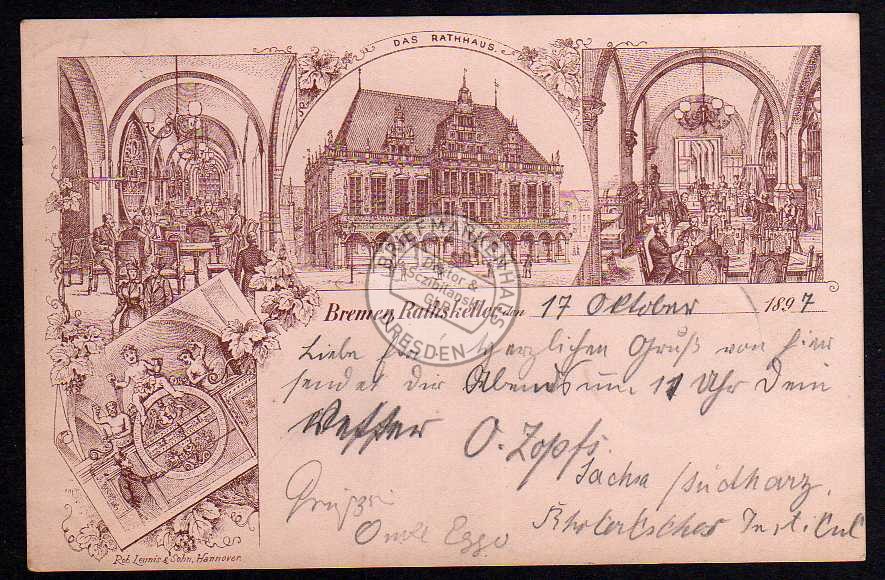 DAS RATHHAUS.
Bremen, Rathskeller, den 17 Oktober 1897
Liebe Herzlichen Gruß von hier
sendet dir Abends um 11 Uhr Dein
Vetter O. Zopfs.
Sachsa / Südharz.
Institut
Onkel Eggo
Rob. Leunis & Sohn, Hannover.
BRIEFMARKENHAUS
Doktor &
Sczibilanski
GbR
DRESDEN